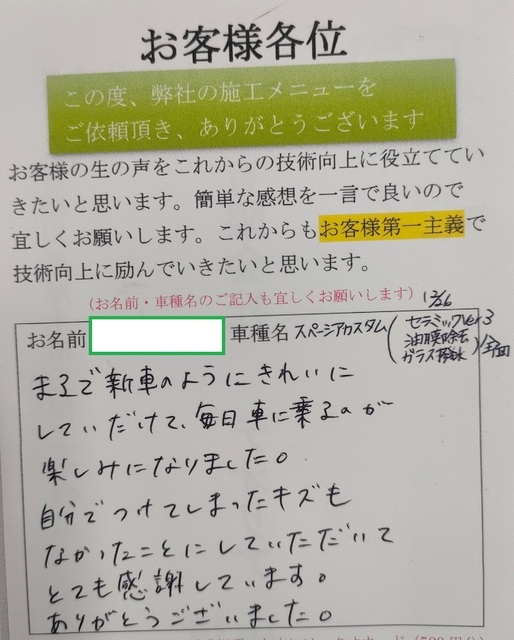 お客様各位
この度、弊社の施工メニューを
ご依頼頂き、ありがとうございます
お客様の生の声をこれからの技術向上に役立ててい
きたいと思います。簡単な感想を一言で良いので
宜しくお願いします。これからもお客様第一主義で
技術向上に励んでいきたいと思います。
(お名前・車種名のご記入も宜しくお願いします) 12/26
お名前 車種名 スペーシアカスタム (セラミックVer3
油膜除去
ガラス撥水/全面)
まるで新車のようにきれいに
していだけて、毎日車に乗るのが
楽しみになりました。
自分でつけてしまったキズも
なかったことにしていただいて
とても感謝しています。
ありがとうございました。